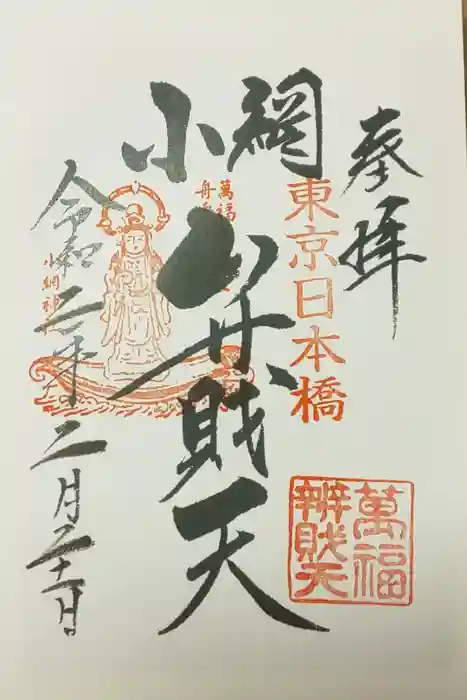 奉拝
東京日本橋
小網
弁財天
萬福
舟
小網神
令和二年
二月二十一日
萬福
辨財天